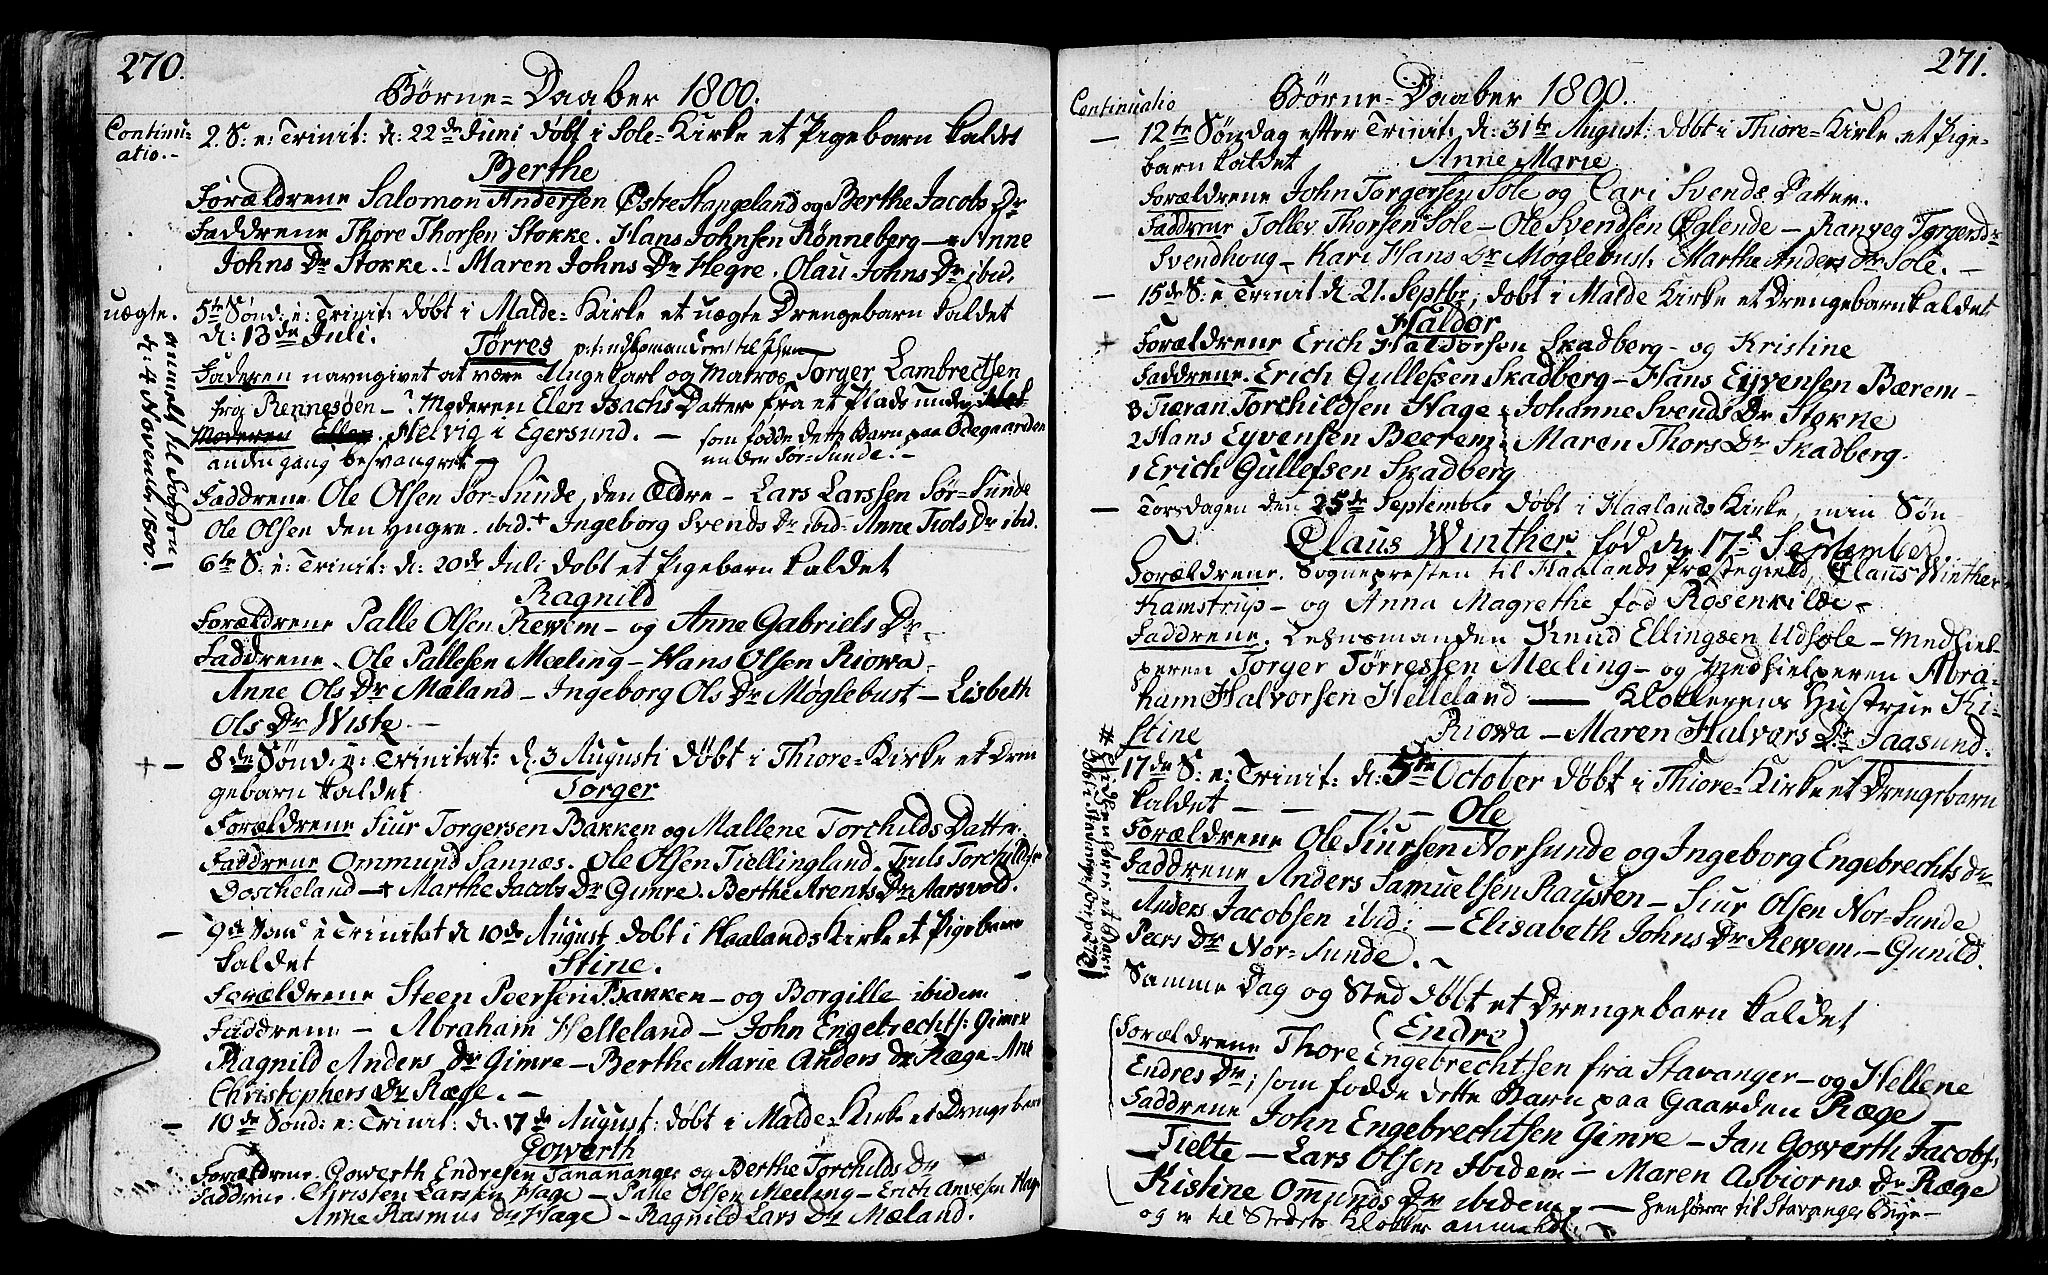 270.
Børne=Daaber 1800.
Continu=
atio.-
2. S: e: Trinit: d: 22de Juni døbt i Sole=Kirke et Pigebarn kaldet
Berthe
Forældrene Salomon Andersen Østre Stangeland og Berthe Jacobs Dr
Faddrene Thore Thorsen Stokke. Hans Johnsen Rønneberg — Anne
Johns Dr Stokke.. Maren Johns Dr Hegre. Olau Johns Dr ibid.
uægte.
5te Sønd: e: Trinit: døbt i Malde=Kirke et uægte Drengebarn kaldet
d: 13de Juli.
Tørres
Faderen navngivet at være Ungekarl og Matros Torger Lambrechtsen
fra Rennesøen — Moderen Elen Isachs Datter fra et Plads under
Moderen Helvig i Egersund. — som fødde dette Barn paa Ødegaarden
anden gang besvangret — under Sør=Sunde.—
anmelt til
d: 4 Novembr 1800.
Faddrene Ole Olsen Sør=Sunde, den Ældre — Lars Larssen Sør=Sunde
Ole Olsen den yngre ibid. + Ingeborg Svends Dr ibid- Anne Tiols Dr ibid.
6te S: e: Trinit: d: 20de Juli døbt et Pigebarn kaldet
Ragnild
Forældrene Palle Olsen Rewem — og Anne Gabriels Dr.
Faddrene. Ole Pallesen Meeling — Hans Olsen Riowa
Anne Ols Dr Mæland — Ingeborg Ols Dr Møglebust — Lisbeth
Ols Dr Wiste.—
+ — 8de Sønd: e: Trinitat: d. 3 Augusti døbt i Thiore=Kirke et Dren
gebarn kaldet Torger
Forældrene Siur Torgersen Bakken og Mallene Torchilds Datter.
Faddrene Ommund Sannæs. Ole Olsen Tiellingland. Truls Torchildsen
Goscheland — + Marthe Jacobs Dr Gimre. Berthe Arents Dr Aarsvold.
— 9de Sønd e Trinitat d 10de August døbt i Haalands Kirke et Pigebarn
kaldet Stine.
Forældrene Steen Peersen Bakken — og Borgille ibidem
Faddrene — Abraham Helleland — John Engebrechts: Gimre
Ragnild Anders Dr Gimre — Berthe Marie Anders Dr Ræge — Ane
Christophers Dr Ræge. —
— 10de Sønd: e: Trinit: d. 17de August: døbt i Malde=Kirke et Drengebarn
Gowerth
Forældrene. Gowerth Endresen Tananger og Berthe Torchilds Dr
Faddrene. Christen Larsen Hage — Palle Olsen Meeling — Erich Anvesen Hage
Anne Rasmus Dr Hage — Ragnild Lars Dr Mæland.
271.
Børne=Daaber 1800.
Continuatio
— 12te Søndag efter Trinit: d: 31te August: døbt i Thiore=Kirke et Pige=
barn kaldet Anne Marie
Forældrene John Torgersen Sole og Cari Svends Datter.
Faddrene Tollev Thorsen Sole — Ole Svendsen Øglende — Ranveg Torgersdr
Svendhoug — Kari Hans Dr Møglebust: Marthe Anders Dr Sole. —
— 15de S: e Trinit d 21. Septbr; døbt i Malde Kirke et Drengebarn kaldet
Haldor
+ Forældrene Erich Haldorsen Skadberg — og Kristine
Faddrene. Erich Gullefsen Skadberg — Hans Eyvensen Bærem —
3 Tiøran Torchildsen Hage — Johanne Svends Dr Stokke
2 Hans Eyvensen Beerem — Maren Thors Dr Skadberg.
1 Erich Gullefsen Skadberg
— Torsdagen den 25de Septembr døbt i Haalands Kirke, min Søn
Claus Winther. fød d. 17de September
Forældrene. Sognepresten til Haalands Præstegield, Claus Winther
Kamstrup — og Anna Magrethe fød Rosenkilde
Faddrene. Lensmanden Knud Ellingsen Udsole — Medhiel=
peren Torger Tørressen Meeling — og Medhielperen Abra=
ham Halvorsen Helleland — Klokkerens Hustrue Ki=
stine Riowa — Maren Halvors Dr Jaasund.
17de S: e: Trinit: d. 5te October døbt i Thiore=Kirke et Drengebarn
kaldet — — — Ole
Forældrene Ole Siursen Norsunde og Ingeborg Engebrechts Dr
Faddrene Anders Samuelsen Raugsten — Siur Olsen Nor=Sunde
Anders Jacobsen ibid: — Elisabeth Johns Dr Rewem — Gunild
Peers Dr Nor=Sunde.
Samme Dag og Sted døbt et Drengebarn kaldet
(Endre)
Forældrene Thore Engebrechtsen fra Stavanger — og Hellene
Endres Dr; som fødde dette Barn paa Gaarden Ræge
Faddrene John Engebrechtsen Gimre — Jan Gowerth Jacobs:
Tielte — Lars Olsen Ibidem — Maren Asbiørns Dr Ræge
Kistine Ommunds Dr ibidem. — henhører til Stavanger Bye —
og er til Stedets Klokker anmeldt.